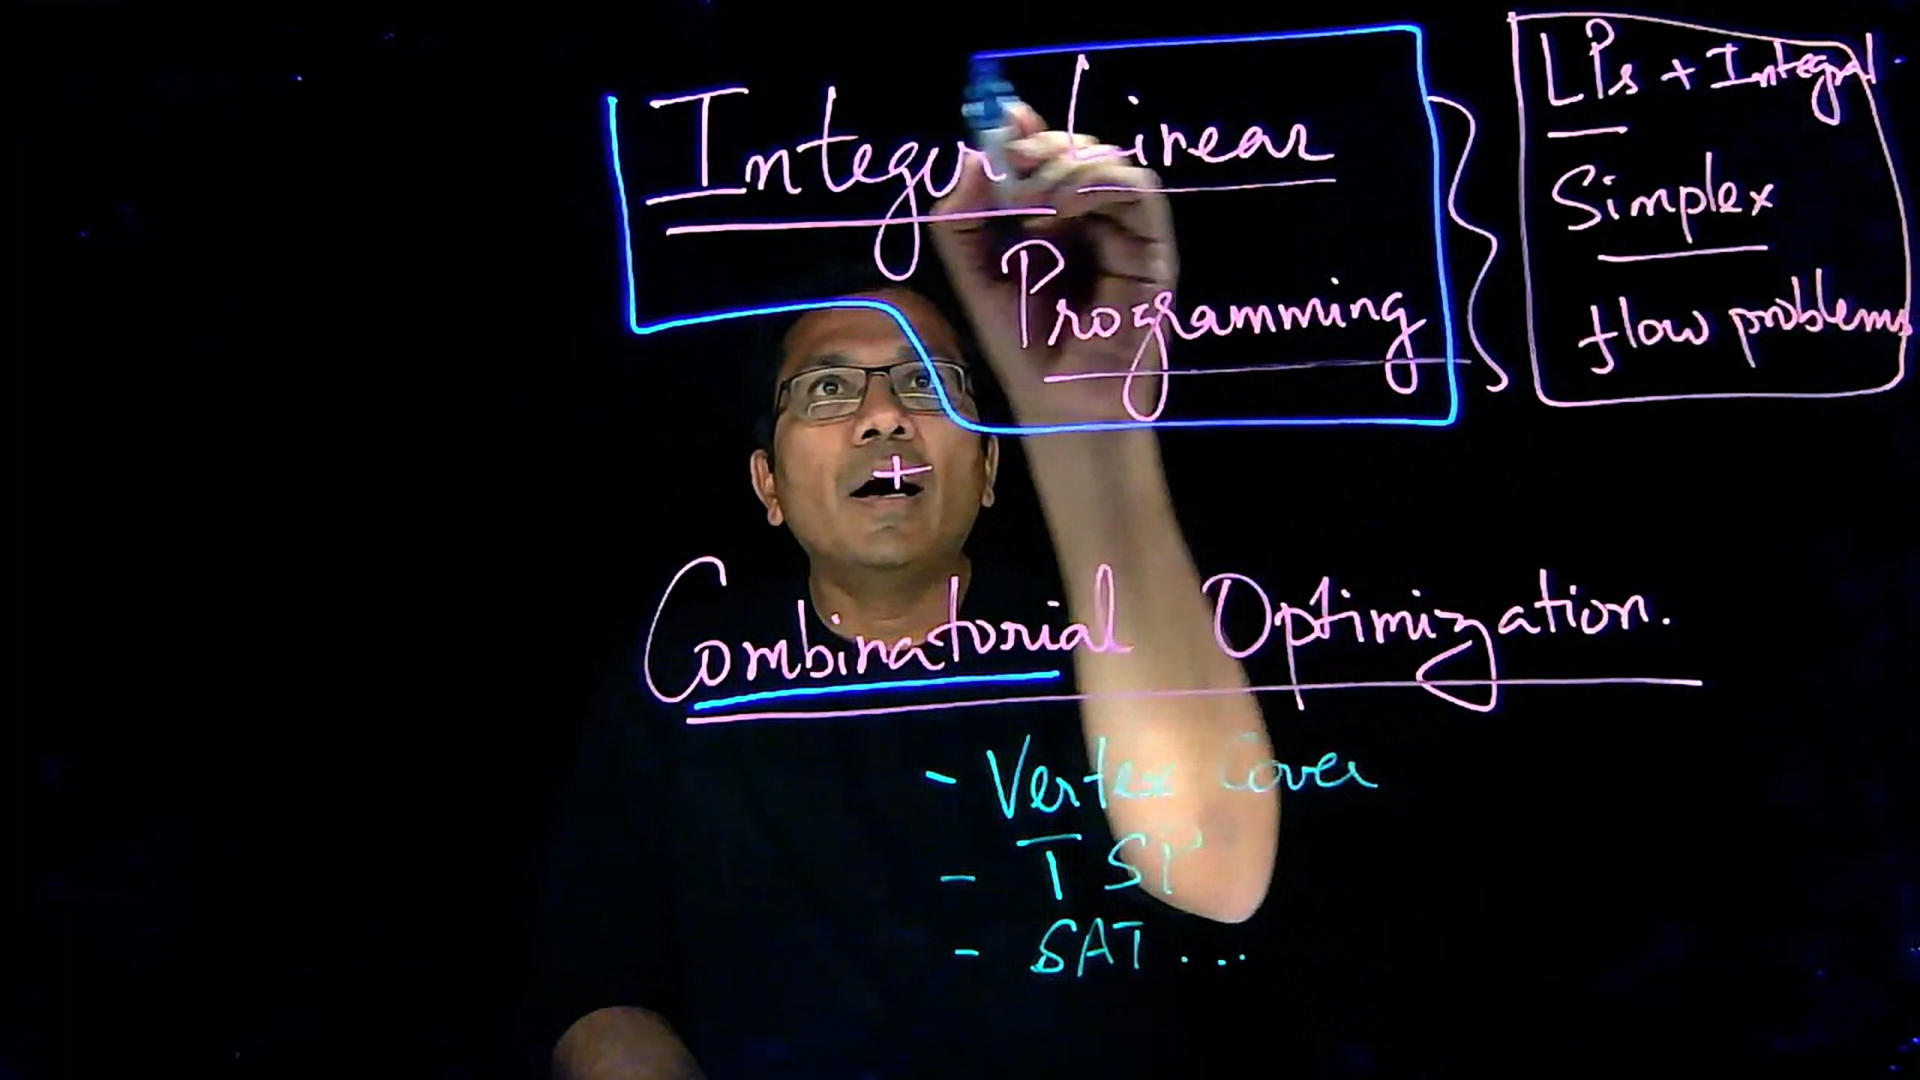 Integer Linear
Programming
LPs + Integral
Simplex
flow problems
+
Combinatorial Optimization.
- Vertex Cover
- TSP
- SAT ...